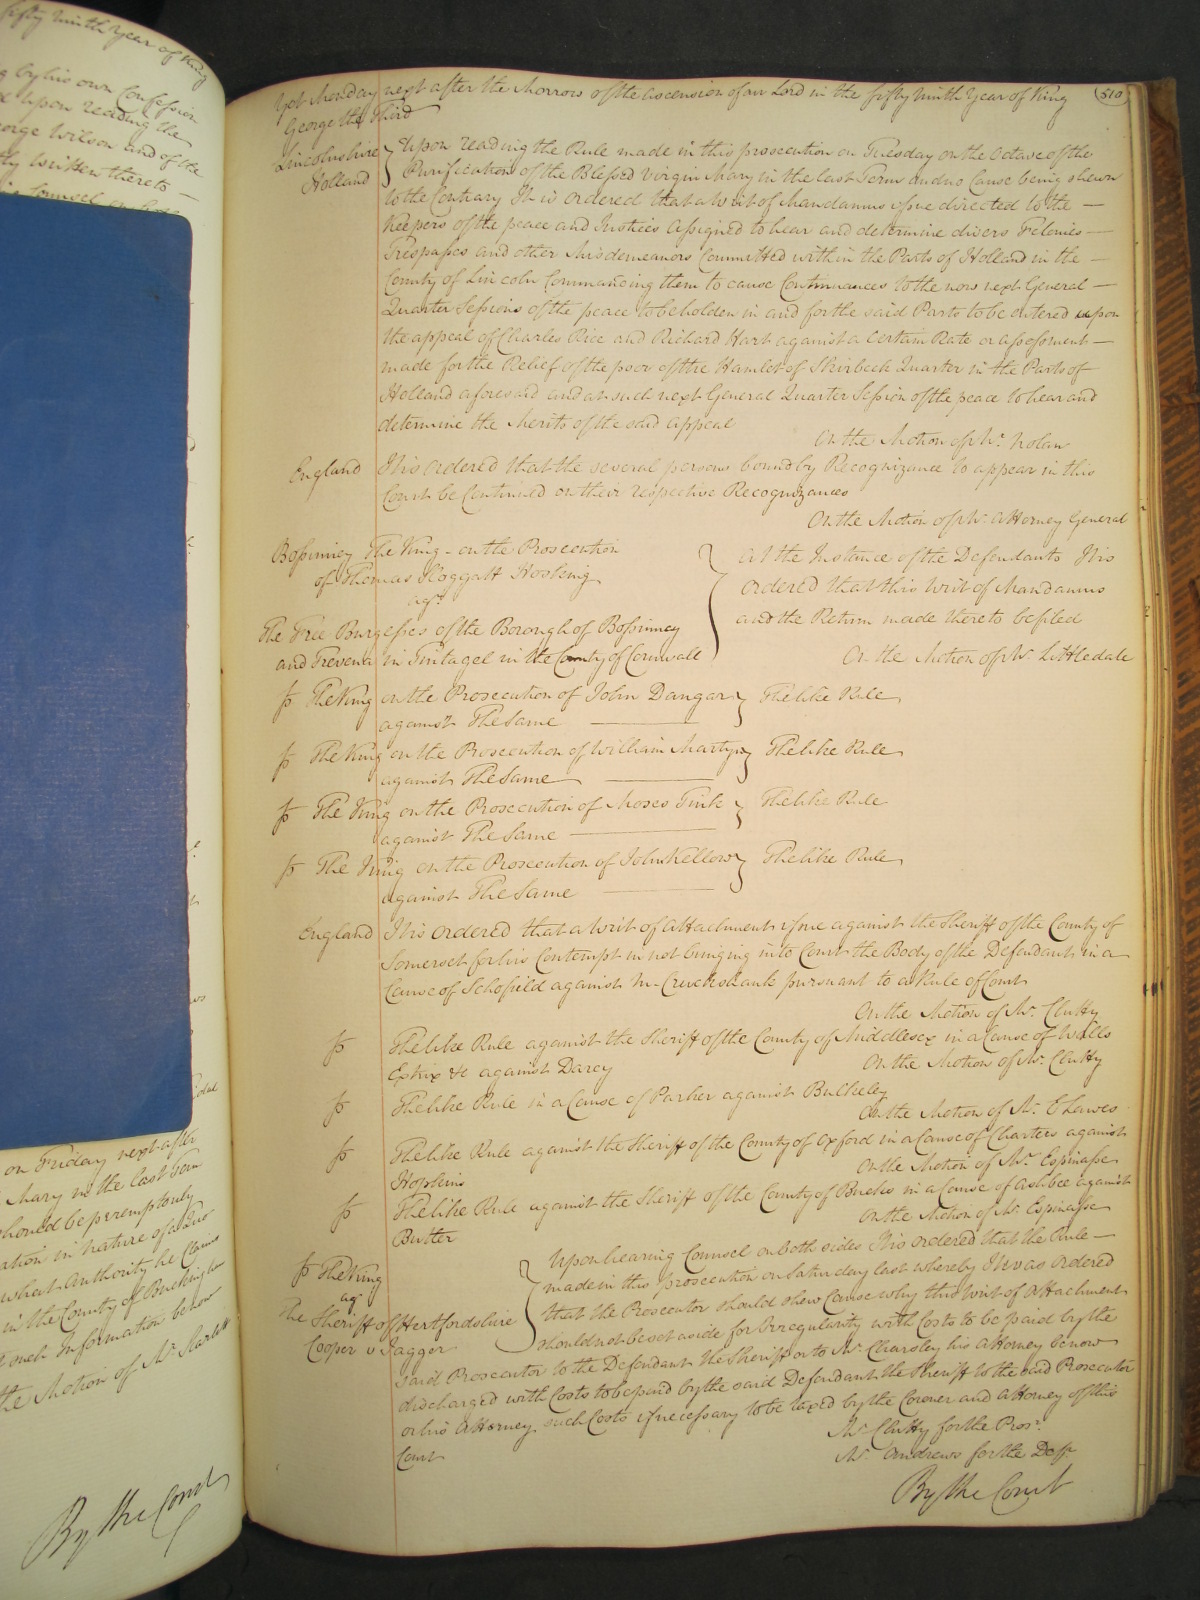 fifty ninth Year of King
by his own Confession
upon reading the
George Wilson and of the
written thereto
on Friday next after
Mary in the last Term
should be peremptorily
in nature of a Quo
what authority he Claims
in the County of Buckingham
such Information below
the Motion of Mr. Scarlett
By the Court
510
Yet Monday next after the Morrow of the Ascension of our Lord in the fifty ninth Year of King
George the Third
Lincolnshire
Holland
Upon reading the Rule made in this prosecution on Tuesday on the Octave of the
Purification of the Blessed Virgin Mary in the last Term and no Cause being shewn
to the Contrary It is Ordered that a Writ of Mandamus issue directed to the —
Keepers of the peace and Justices Assigned to hear and determine divers Felonies —
Trespasses and other Misdemeanors Committed within the Parts of Holland in the —
County of Lincoln Commanding them to cause Continuances to the now next General —
Quarter Sessions of the peace to be holden in and for the said Parts to be entered upon
the appeal of Charles Rice and Richard Hart against a Certain Rate or assessment —
made for the Relief of the poor of the Hamlet of Skirbeck Quarter in the Parts of
Holland aforesaid and at such next General Quarter Session of the peace to hear and
determine the Merits of the said Appeal
On the Motion of Mr. Nolan
England It is Ordered that the several persons bound by Recognizance to appear in this
Court be Continued on their respective Recognizances
On the Motion of Mr. Attorney General
Bossinney The King - on the Prosecution
of Thomas Hoggatt Hosking
agst.
The Free Burgesses of the Borough of Bossinney
and Trevena in Tintagel in the County of Cornwall
At the Instance of the Defendants It is
Ordered that this Writ of Mandamus
and the Return made thereto be filed
On the Motion of Mr. Littledale
The King on the Prosecution of John Dangar The like Rule
against The Same
The King on the Prosecution of William Martyn The like Rule
against The Same
The King on the Prosecution of Moses Tink The like Rule
against The Same
The King on the Prosecution of John Kellow The like Rule
against The Same
England It is ordered that a Writ of Attachment issue against the Sheriff of the County of
Somerset for his Contempt in not bringing into Court the Body of the Defendant in a
Cause of Schofield against McCruickshank pursuant to a Rule of Court
On the Motion of Mr. Chitty
The like Rule against the Sheriff of the County of Middlesex in a Cause of Wells
Exkix &c against Darcy
On the Motion of Mr. Chitty
The like Rule in a Cause of Parker against Bulkeley
On the Motion of Mr. E Lawes
The like Rule against the Sheriff of the County of Oxford in a Cause of Charters against
Hopkins
On the Motion of Mr. Espinasse
The like Rule against the Sheriff of the County of Bucks in a Cause of Ashbee against
Butter
On the Motion of Mr. Espinasse
The King
agt
The Sheriff of Hertfordshire
Cooper v Jagger
Upon hearing Counsel on both sides It is ordered that the Rule —
made in this prosecution on Saturday last whereby It was ordered
that the Prosecutor should shew Cause why this Writ of Attachment
should not be set aside for Irregularity with Costs to be paid by the
said Prosecutor to the Defendant the Sheriff or to Mr. Charsley his Attorney be now
discharged with Costs to be paid by the said Defendant the Sheriff to the said Prosecutor
or his Attorney such Costs if necessary to be taxed by the Coroner and Attorney of this
Court
Mr. Chitty for the Prosr.
Mr. Andrews for the Deft.
By the Court